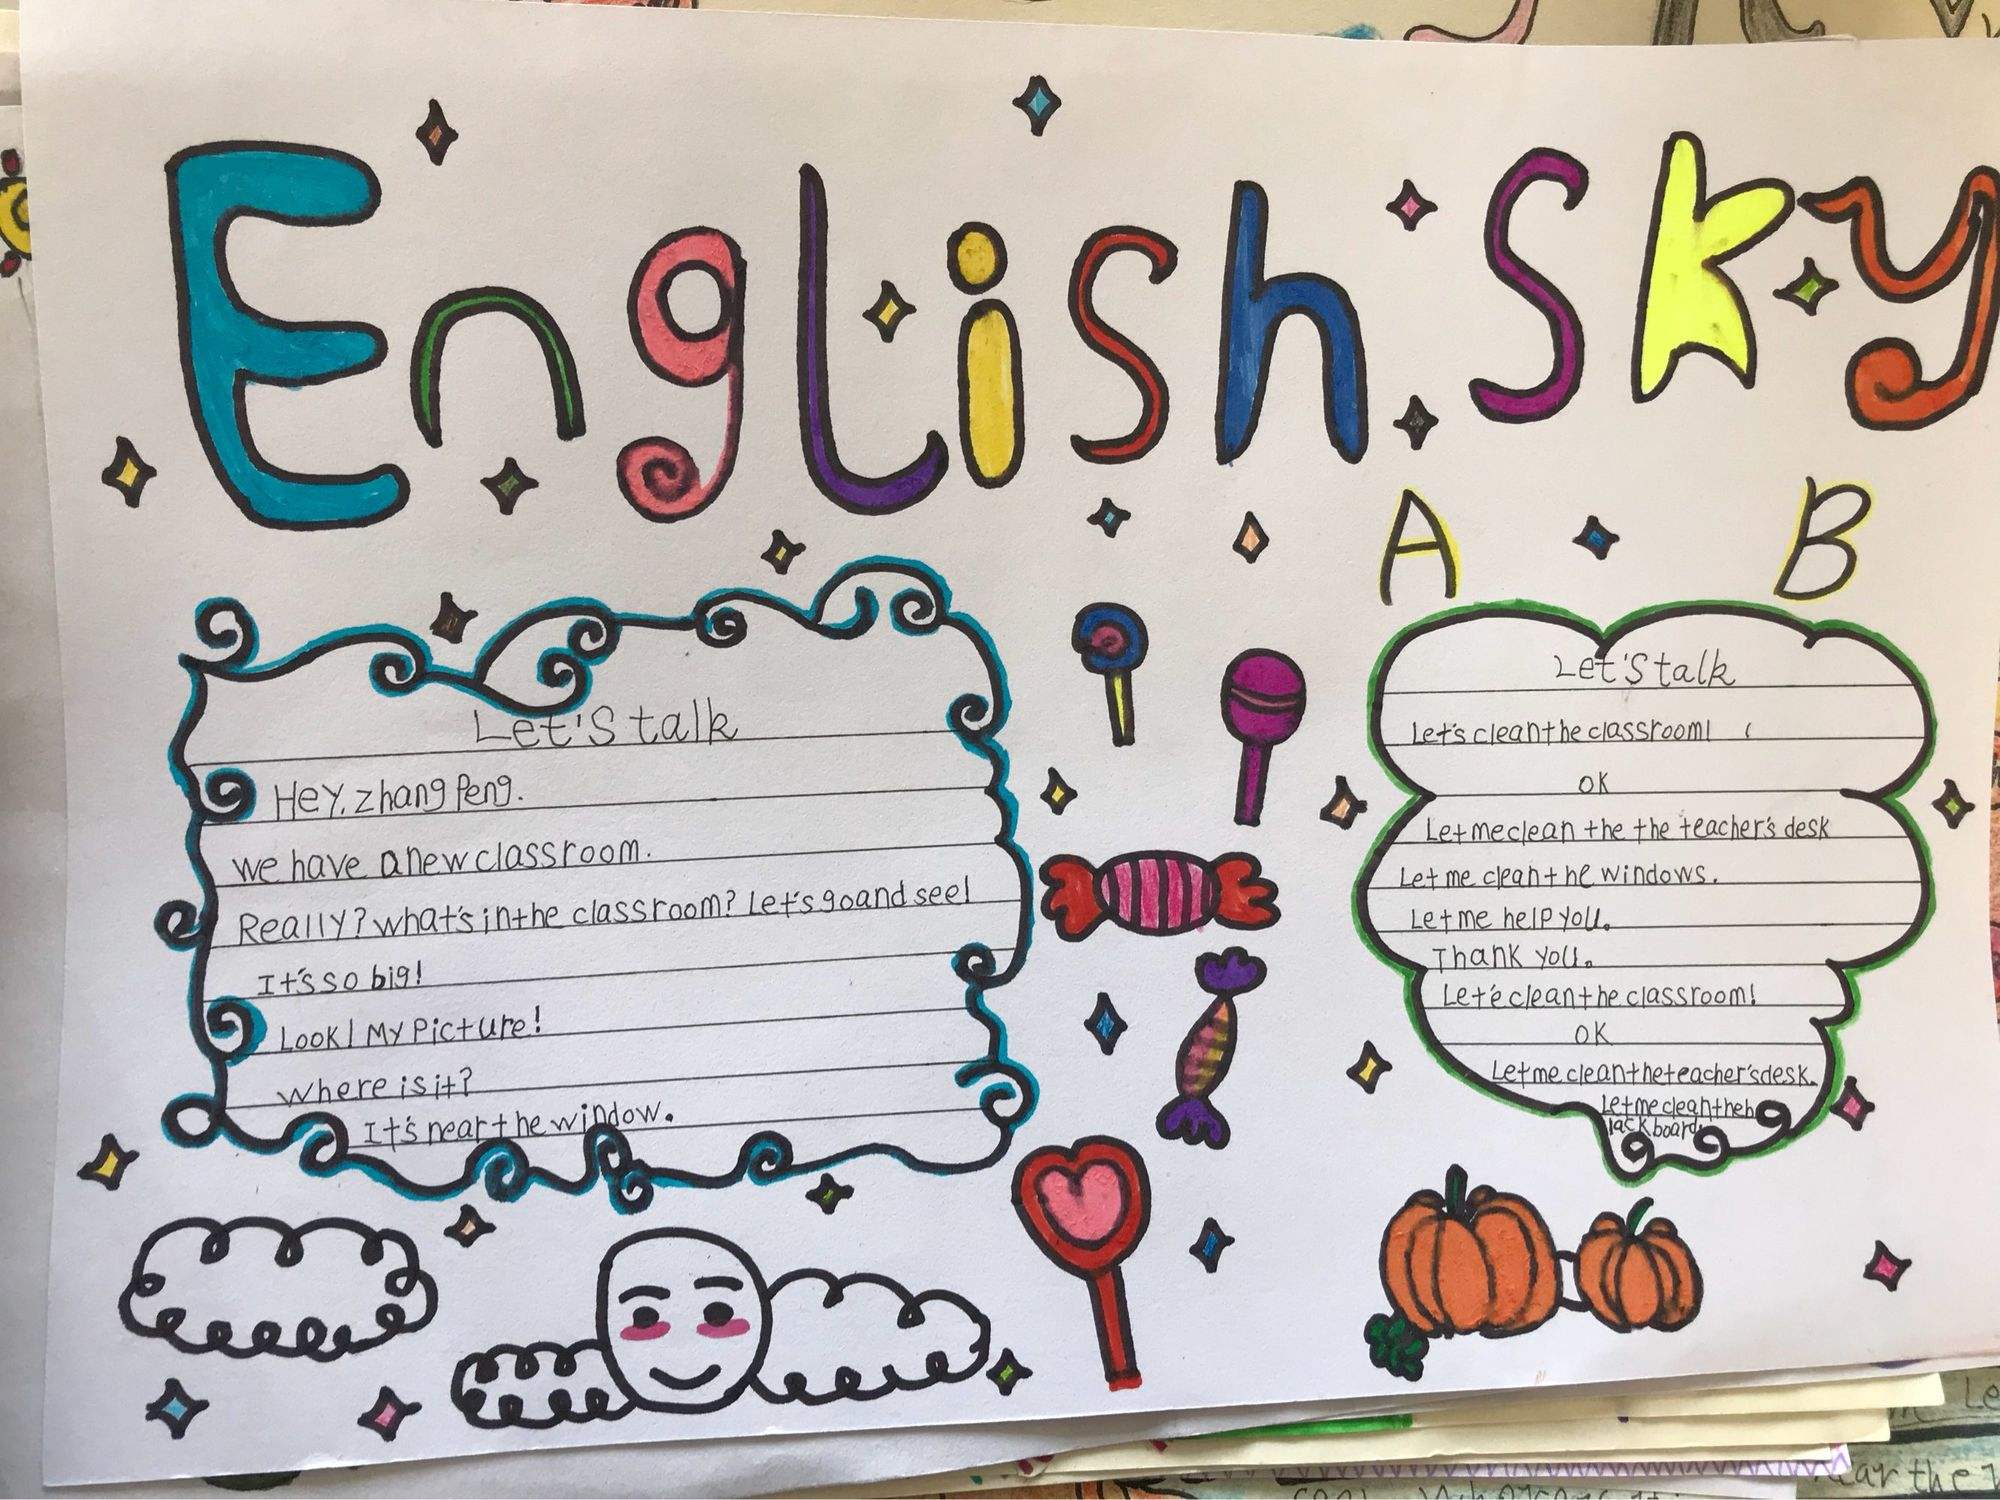 English Sky
A B
Let's talk
Hey, zhang Peng.
we have a new classroom.
Really? what's in the classroom? Let's go and see!
It's so big!
Look! My Picture!
where is it?
It's near the window.
Let's talk
Let's clean the classroom!
OK
Let me clean the the teacher's desk
Let me clean the windows.
Let me help you.
Thank you.
Let'e clean the classroom!
OK
Let me clean the teacher's desk.
Let me clean the b
lackboard.
ar the